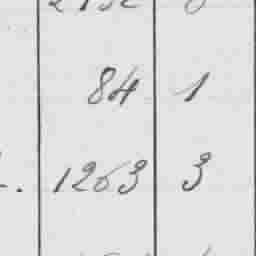 84 1
1263 3